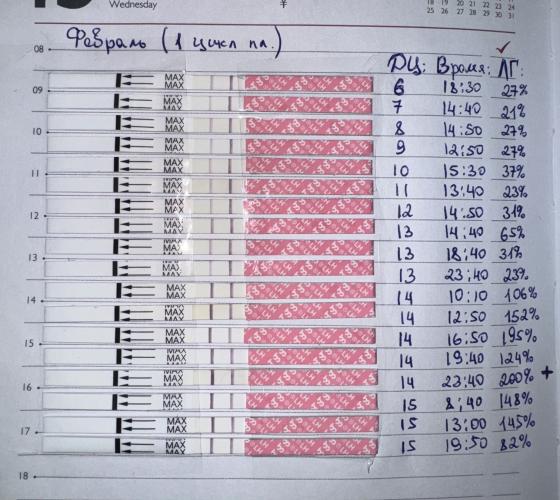 Wednesday
¥
18 19 20 21 22 23 24
25 26 27 28 29 30 31
08
Февраль (1 цикл пл.)
✓
ДЦ: Время: ЛГ:
09
10
11
12
13
14
15
16
17
18
MAX
MAX
MAX
MAX
MAX
MAX
MAX
MAX
MAX
MAX
MAX
MAX
MAX
MAX
MAX
MAX
MAX
MAX
6 18:30 27%
7 14:40 21%
8 14:50 27%
9 12:50 27%
10 15:30 37%
11 13:40 23%
12 14:50 31%
13 14:40 65%
13 18:40 31%
13 23:40 23%
14 10:10 106%
14 12:50 152%
14 16:50 195%
14 19:40 124%
14 23:40 200% +
15 8:40 148%
15 13:00 145%
15 19:50 82%